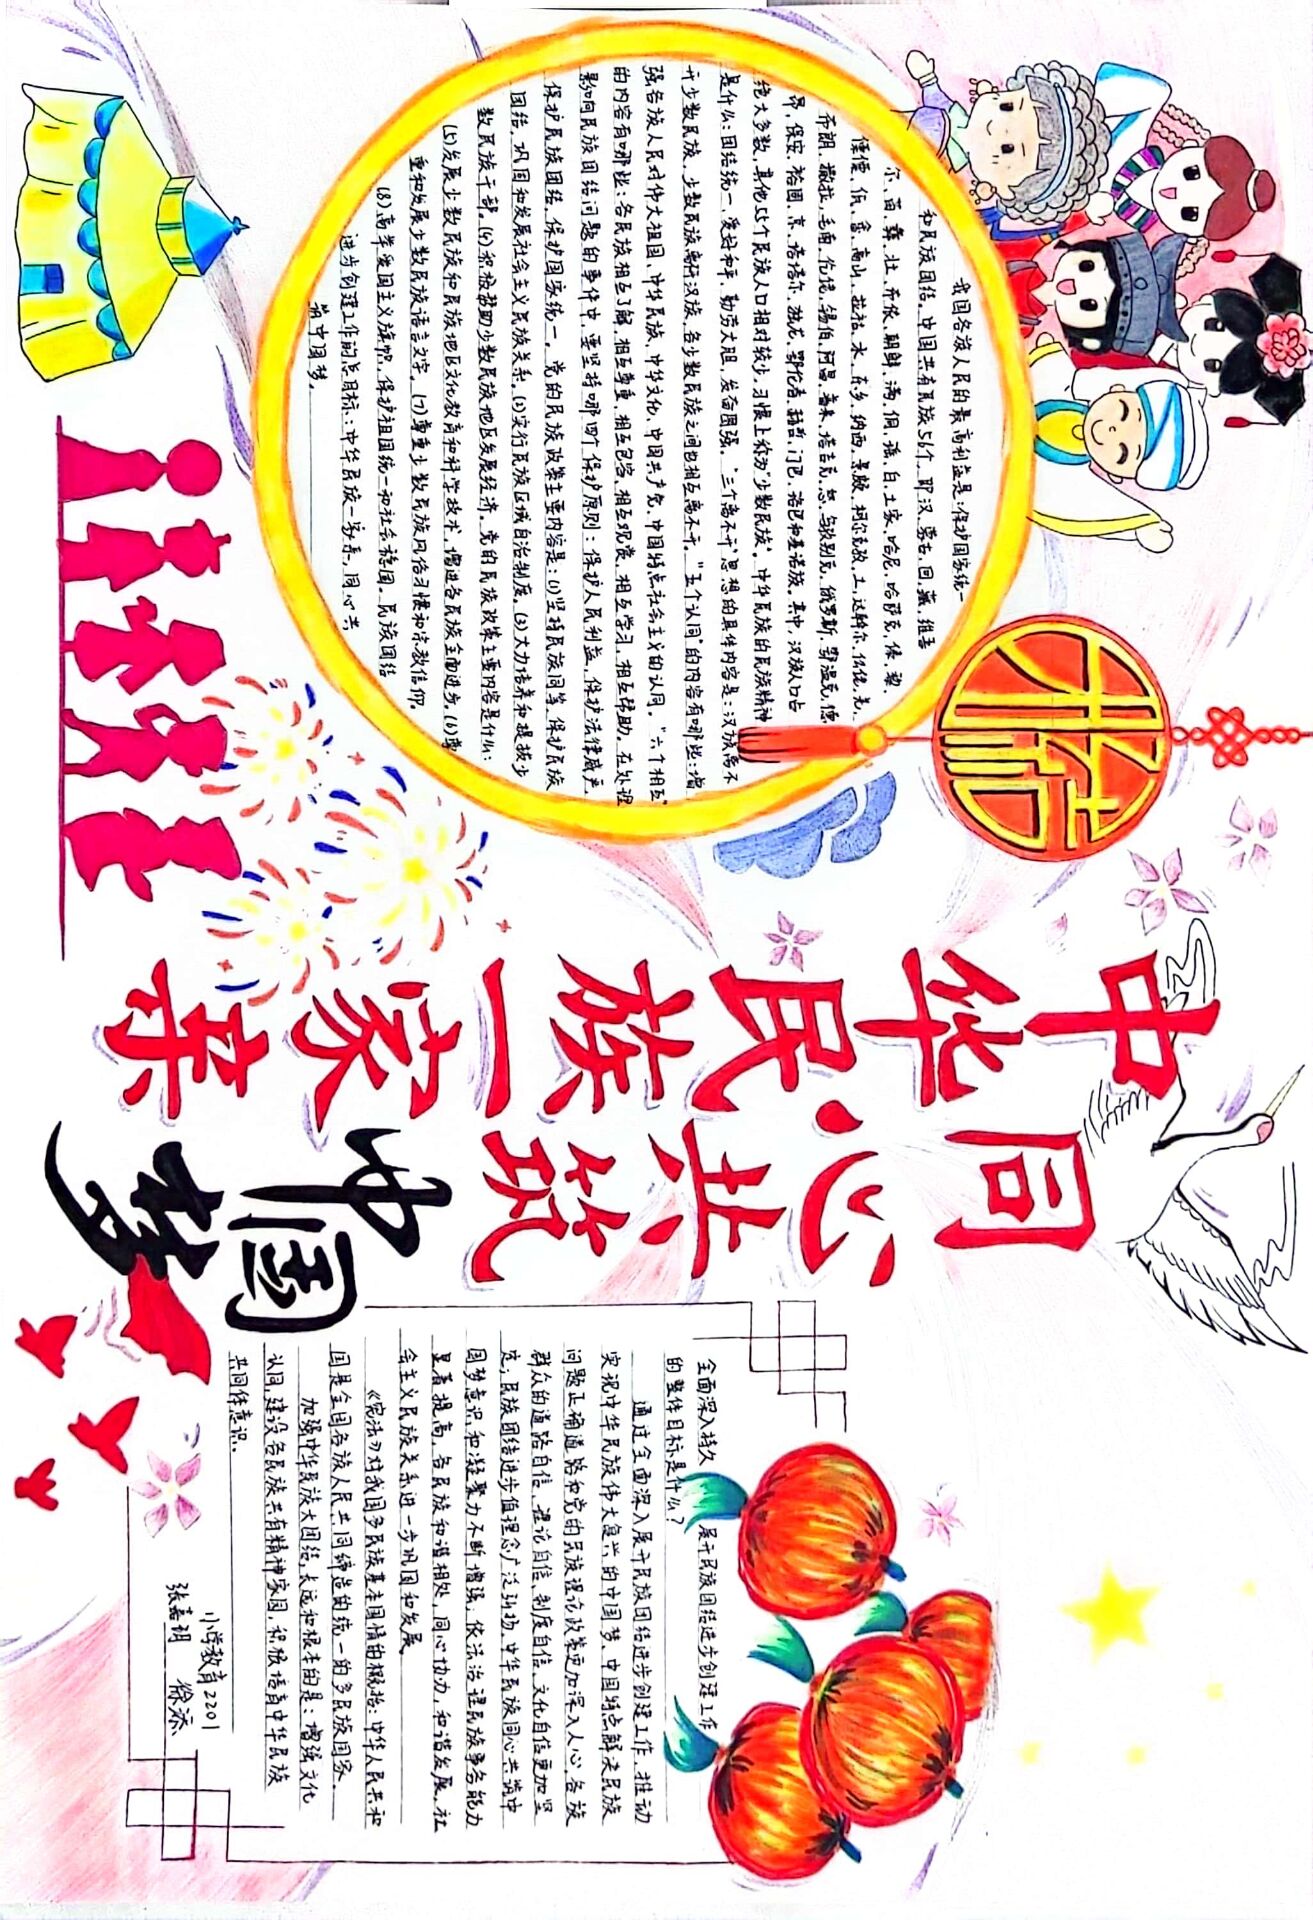 中华民族一家亲
同心共筑
中国梦
我国各族人民的最高利益是：保护国家统一
和民族团结。中国共有民族56个，即汉、蒙古、回、藏、维吾
尔、苗、彝、壮、布依、朝鲜、满、侗、瑶、白、土家、哈尼、哈萨克、傣、黎、
傈僳、佤、畲、高山、拉祜、水、东乡、纳西、景颇、柯尔克孜、土、达斡尔、仫佬、羌、
布朗、撒拉、毛南、仡佬、锡伯、阿昌、普米、塔吉克、怒、乌孜别克、俄罗斯、鄂温克、德
昂、保安、裕固、京、塔塔尔、独龙、鄂伦春、赫哲、门巴、珞巴和基诺族。其中，汉族人口占
绝大多数，其他55个民族人口相对较少，习惯上称为“少数民族”。中华民族的民族精神
是什么：团结统一、爱好和平、勤劳大胆，发奋图强。“三个离不开”思想的具体内容是：汉族离不
开少数民族，少数民族离不开汉族，各少数民族之间也相互离不开。“五个认同”的内容有哪些：增
强各族人民对伟大祖国、中华民族、中华文化、中国共产党、中国特点社会主义的认同。“六个相互”
的内容有哪些：各民族相互了解、相互尊重、相互包容、相互观赏、相互学习、相互帮助。在处理
影响民族团结问题的事件中，要坚持哪“四个”保护原则：保护人民利益，保护法律庄严，
保护民族团结，保护国家统一。党的民族政策主要内容是：(1)坚持民族同等，保护民族
团结，巩固和发展社会主义民族关系。(2)实行民族区域自治制度。(3)大力培养和提拔少
数民族干部。(4)积极帮助少数民族地区发展经济。党的民族政策主要内容是什么：
(5)发展少数民族和民族地区文化教育和科学技术，增进各民族全面进步。(6)尊
重和发展少数民族语言文字。(7)尊重少数民族风俗习惯和宗教信仰。
(8)高举爱国主义旗帜，保护祖国统一和社会稳固。民族团结
进步创建工作的总目标：中华民族一家亲，同心共
筑中国梦。
全面深入持久 展开民族团结进步创建工作
的整体目标是什么？
通过全面深入展开民族团结进步创建工作，推动
实现中华民族伟大复兴的中国梦、中国特点解决民族
问题正确道路和党的民族理论政策更加深入人心，各族
群众的道路自信、理论自信、制度自信、文化自信更加坚
定；民族团结进步值理念广泛弘扬，中华民族同心共筑中
国梦意识和凝聚力不断增强；依法治理民族事务能力
显着提高，各民族和谐相处，同心协力，和谐发展，社
会主义民族关系进一步巩固和发展。
《宪法》对我国多民族基本国情的概括：中华人民共和
国是全国各族人民共同缔造的统一的多民族国家。
加强中华民族大团结，长远和根本的是：增强文化
认同，建设各民族共有精神家园，积极培育中华民族
共同体意识。
小学教育2201
张嘉玥 徐添